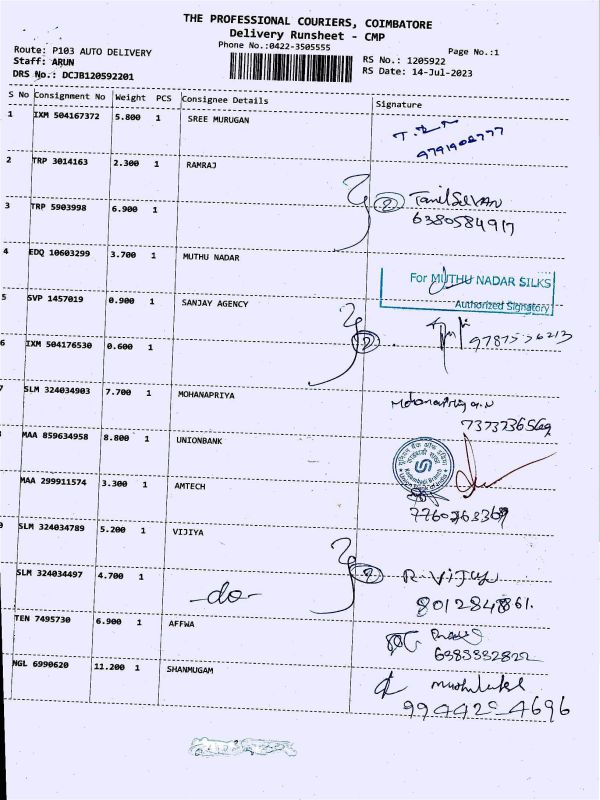 THE PROFESSIONAL COURIERS, COIMBATORE
Delivery Runsheet - CMP
Phone No.:0422-3505555
Page No.:1
Route: P103 AUTO DELIVERY
Staff: ARUN
DRS No.: DCJB120592201
RS No.: 1205922
RS Date: 14-Jul-2023
S No Consignment No Weight PCS Consignee Details Signature
1 IXM 504167372 5.800 1 SREE MURUGAN
2 TRP 3014163 2.300 1 RAMRAJ
② TamilSelVAN
3 TRP 5903998 6.900 1
6380584917
4 EDQ 10603299 3.700 1 MUTHU NADAR
For MUTHU NADAR SILKS
Authorized Signatory
5 SVP 1457019 0.900 1 SANJAY AGENCY
②
6 IXM 504176530 0.600 1
SLM 324034903 7.700 1 MOHANAPRIYA
Mohanapriya.N
MAA 859634958 8.800 1 UNIONBANK
MAA 299911574 3.300 1 AMTECH
SLM 324034789 5.200 1 VIJIYA
② R. Vijay
SLM 324034497 4.700 1 -do-
TEN 7495730 6.900 1 AFFWA
6383332822
NGL 6990620 11.200 1 SHANMUGAM